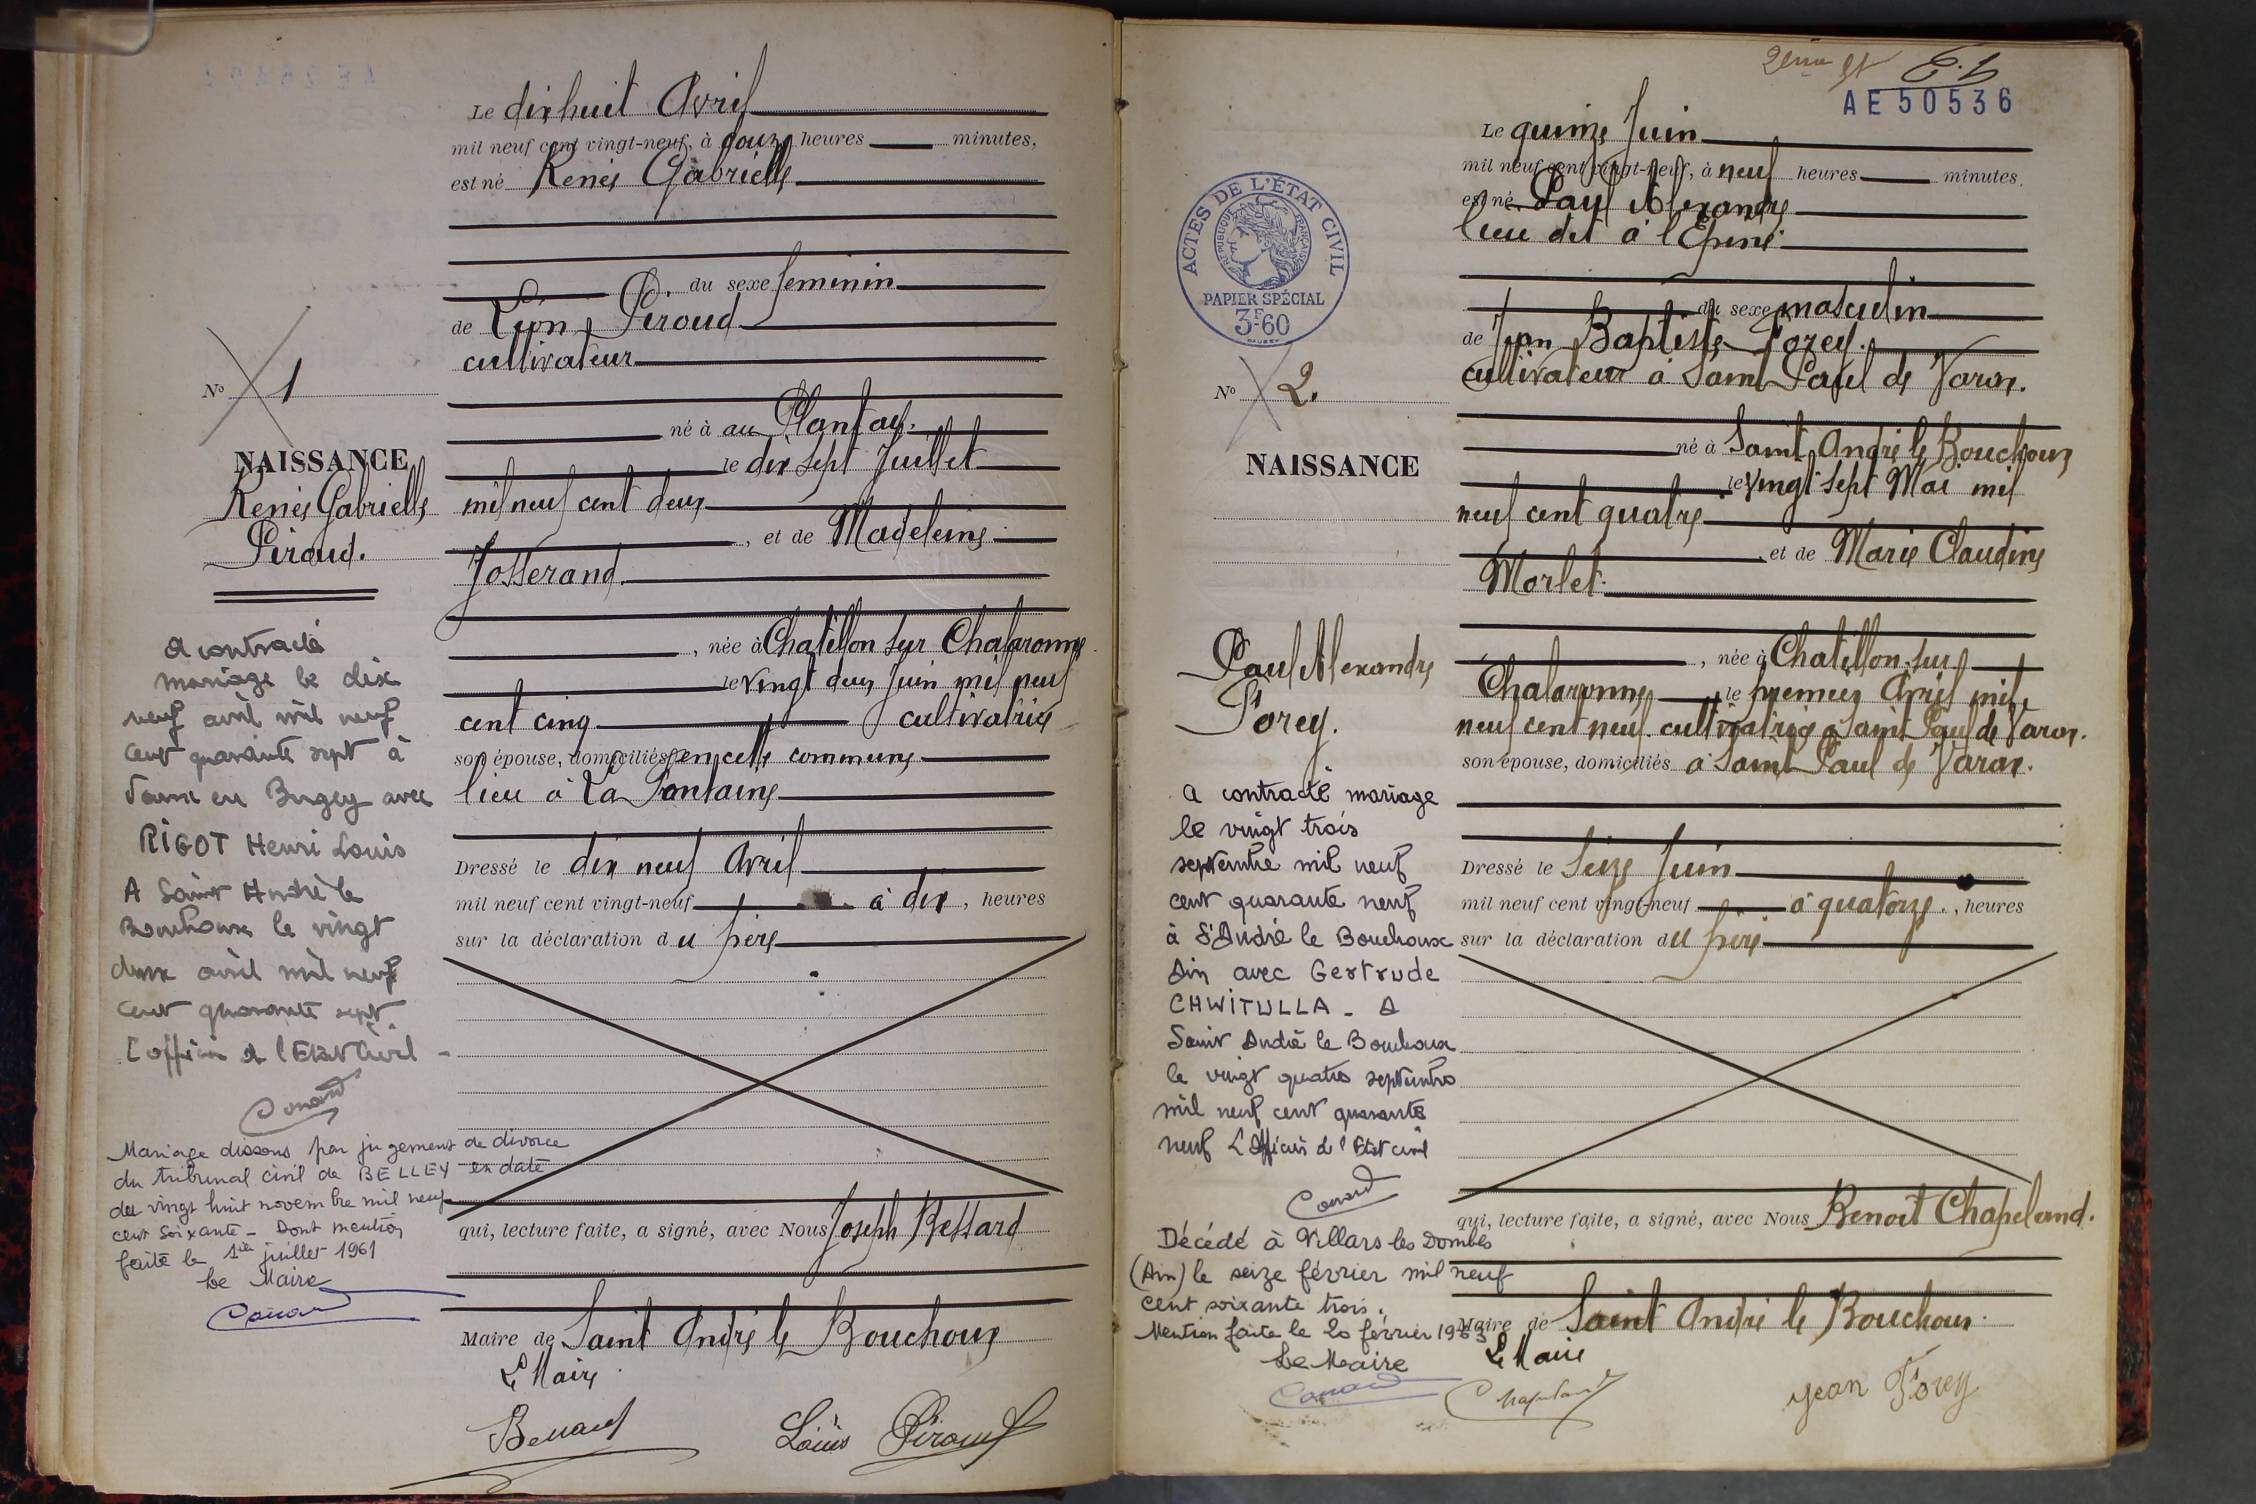 Le dix huit Avril
mil neuf cent vingt-neuf, à douze heures minutes,
est né Renée Gabrielle
du sexe feminin
de Piroud
cultivateur
né à au Plantay.
le dix sept Juillet
mil neuf cent deux
, et de Madeleine
Josserand.
, née à Chatillon sur Chalaronne
le vingt deux Juin mil neuf
cent cinq cultivatrice
son épouse, domiciliés en cette commune
lieu à La Fontaine
Dressé le dix neuf Avril
mil neuf cent vingt-neuf à dix, heures
sur la déclaration du père
qui, lecture faite, a signé, avec Nous Joseph Bessard
Maire de Saint André le Bouchoux
Le Maire
Louis Piroud
No 1
NAISSANCE
Renée Gabrielle
Piroud.
A contracté
mariage le dix
neuf avril mil neuf
cent quarante sept à
en Bugey avec
RIGOT Henri Louis
A Saint André le
Bouchoux le vingt
deux avril mil neuf
cent quarante sept
L'officier de l'Etat Civil
Mariage dissous par jugement de divorce
du tribunal civil de BELLEY en date
du vingt huit novembre mil neuf
cent soixante - Dont mention
faite le 1er juillet 1961
Le Maire
2ème
AE 50536
ACTES DE L'ÉTAT CIVIL
RÉPUBLIQUE FRANÇAISE
PAPIER SPÉCIAL
3F60
Le quinze Juin
mil neuf cent vingt-neuf, à neuf heures minutes.
est né Paul Alexandre
lieu dit à l'Epine
du sexe masculin
de Jean Baptiste Forey.
cultivateur à Saint Paul de Varax.
né à Saint André le Bouchoux
le vingt sept Mai mil
neuf cent quatre
et de Marie Claudine
Morlet.
, née à Chatillon sur
Chalaronne le premier Avril mil
neuf cent neuf. cultivatrice à Saint Paul de Varax.
son épouse, domiciliés à Saint Paul de Varax.
Dressé le Seize Juin
mil neuf cent vingt-neuf à quatorze, heures
sur la déclaration du père
qui, lecture faite, a signé, avec Nous Benoit Chapeland.
Maire de Saint André le Bouchoux.
Le Maire
Jean Forey
No 2.
NAISSANCE
Paul Alexandre
Forey.
a contracté mariage
le vingt trois
septembre mil neuf
cent quarante neuf
à St André le Bouchoux
Ain avec Gertrude
CHWITULLA - A
Saint André le Bouchoux
le vingt quatre septembre
mil neuf cent quarante
neuf L'Officier de l'Etat civil
Décédé à Villars les Dombes
(Ain) le seize février mil neuf
cent soixante trois.
Mention faite le 20 février 1963
Le Maire